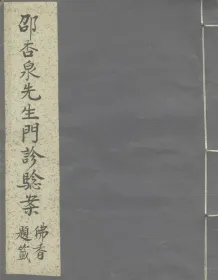 邵杏泉先生門診驗案
佛香
題籤